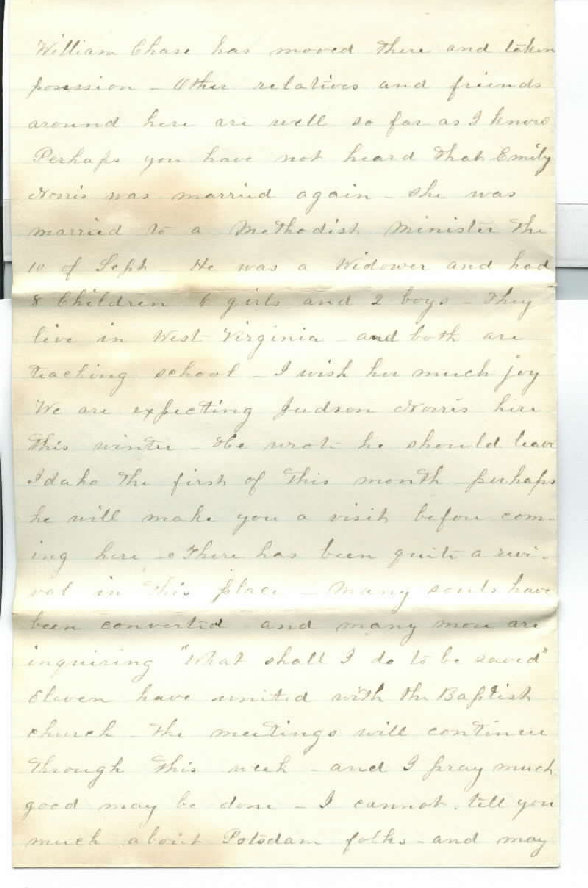 William Chase has moved there and taken
possession - Other relatives and friends
around here are well so far as I know
Perhaps you have not heard that Emily
Norris was married again - she was
married to a Methodist Minister the
10 of Sept He was a Widower and had
8 Children 6 girls and 2 boys - They
live in West Virginia - and both are
teaching school - I wish her much joy
We are expecting Judson Norris here
this winter - He wrote he should leave
Idaho the first of this month perhaps
he will make you a visit before com-
ing here - There has been quite a revi-
val in this place - Many souls have
been converted and many more are
inquiring "What shall I do to be saved"
Eleven have united with the Baptist
church - The meetings will continue
through this week - and I pray much
good may be done - I cannot tell you
much about Potsdam folks - and may